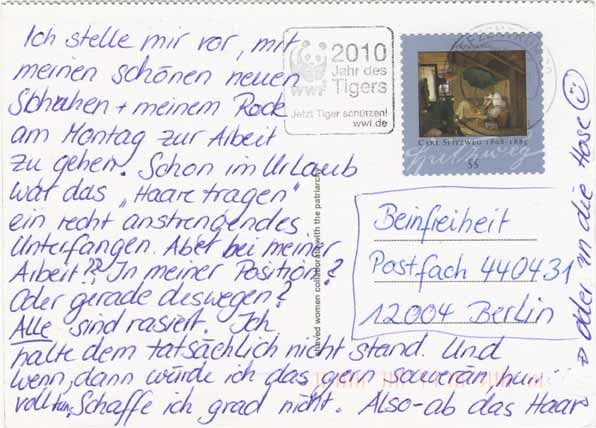 Ich stelle mir vor, mit
meinen schönen neuen
Schuhen + meinem Rock
am Montag zur Arbeit
zu gehen. Schon im Urlaub
war das „Haare tragen"
ein recht anstrengendes
Unterfangen. Aber bei meiner
Arbeit?? In meiner Position?
Oder gerade deswegen?
Alle sind rasiert. Ich
halte dem tatsächlich nicht stand. Und
wenn, dann würde ich das gern souverän
voll tun. Schaffe ich grad nicht. Also-ab das Haar
⇒ oder in die Hose ☺
WWF
2010
Jahr des
Tigers
Jetzt Tiger schützen!
wwf.de
CARL SPITZWEG 1808-1885
55
shaved women collaborate with the patriarchy
Beinfreiheit
Postfach 440431
12004 Berlin